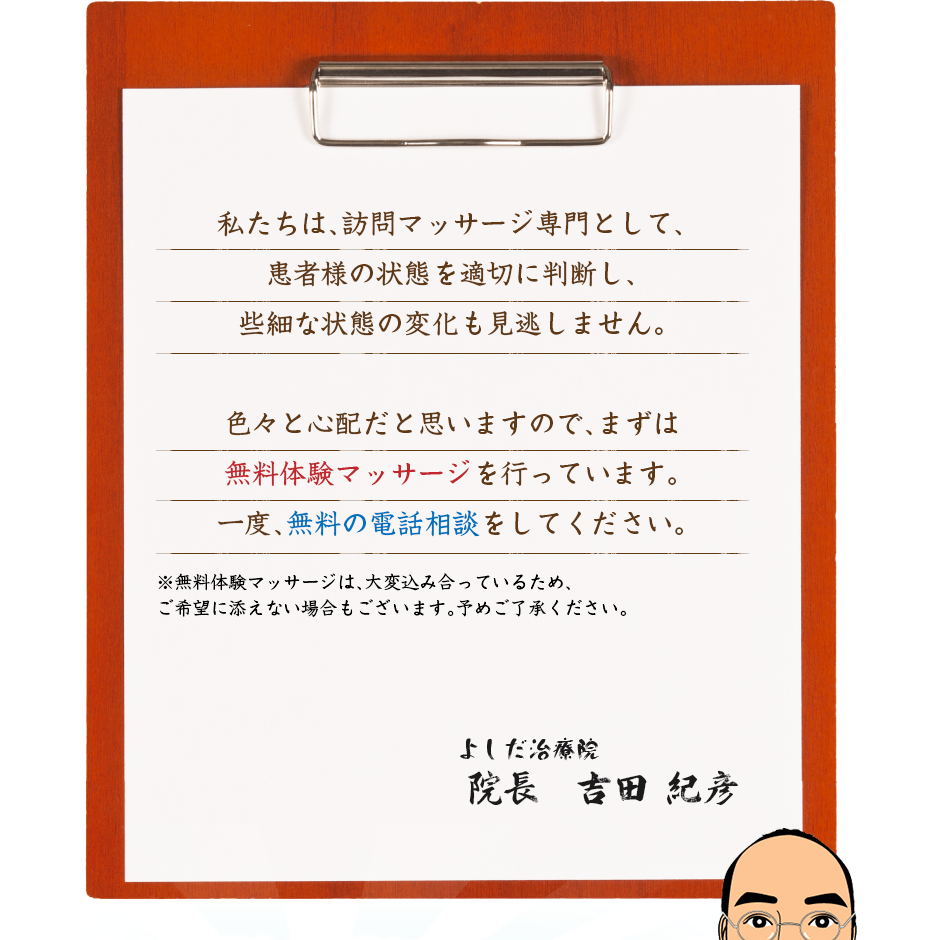 私たちは、訪問マッサージ専門として、
患者様の状態を適切に判断し、
些細な状態の変化も見逃しません。
色々と心配だと思いますので、まずは
無料体験マッサージを行っています。
一度、無料の電話相談をしてください。
※無料体験マッサージは、大変込み合っているため、
ご希望に添えない場合もございます。予めご了承ください。
よしだ治療院
院長 吉田 紀彦